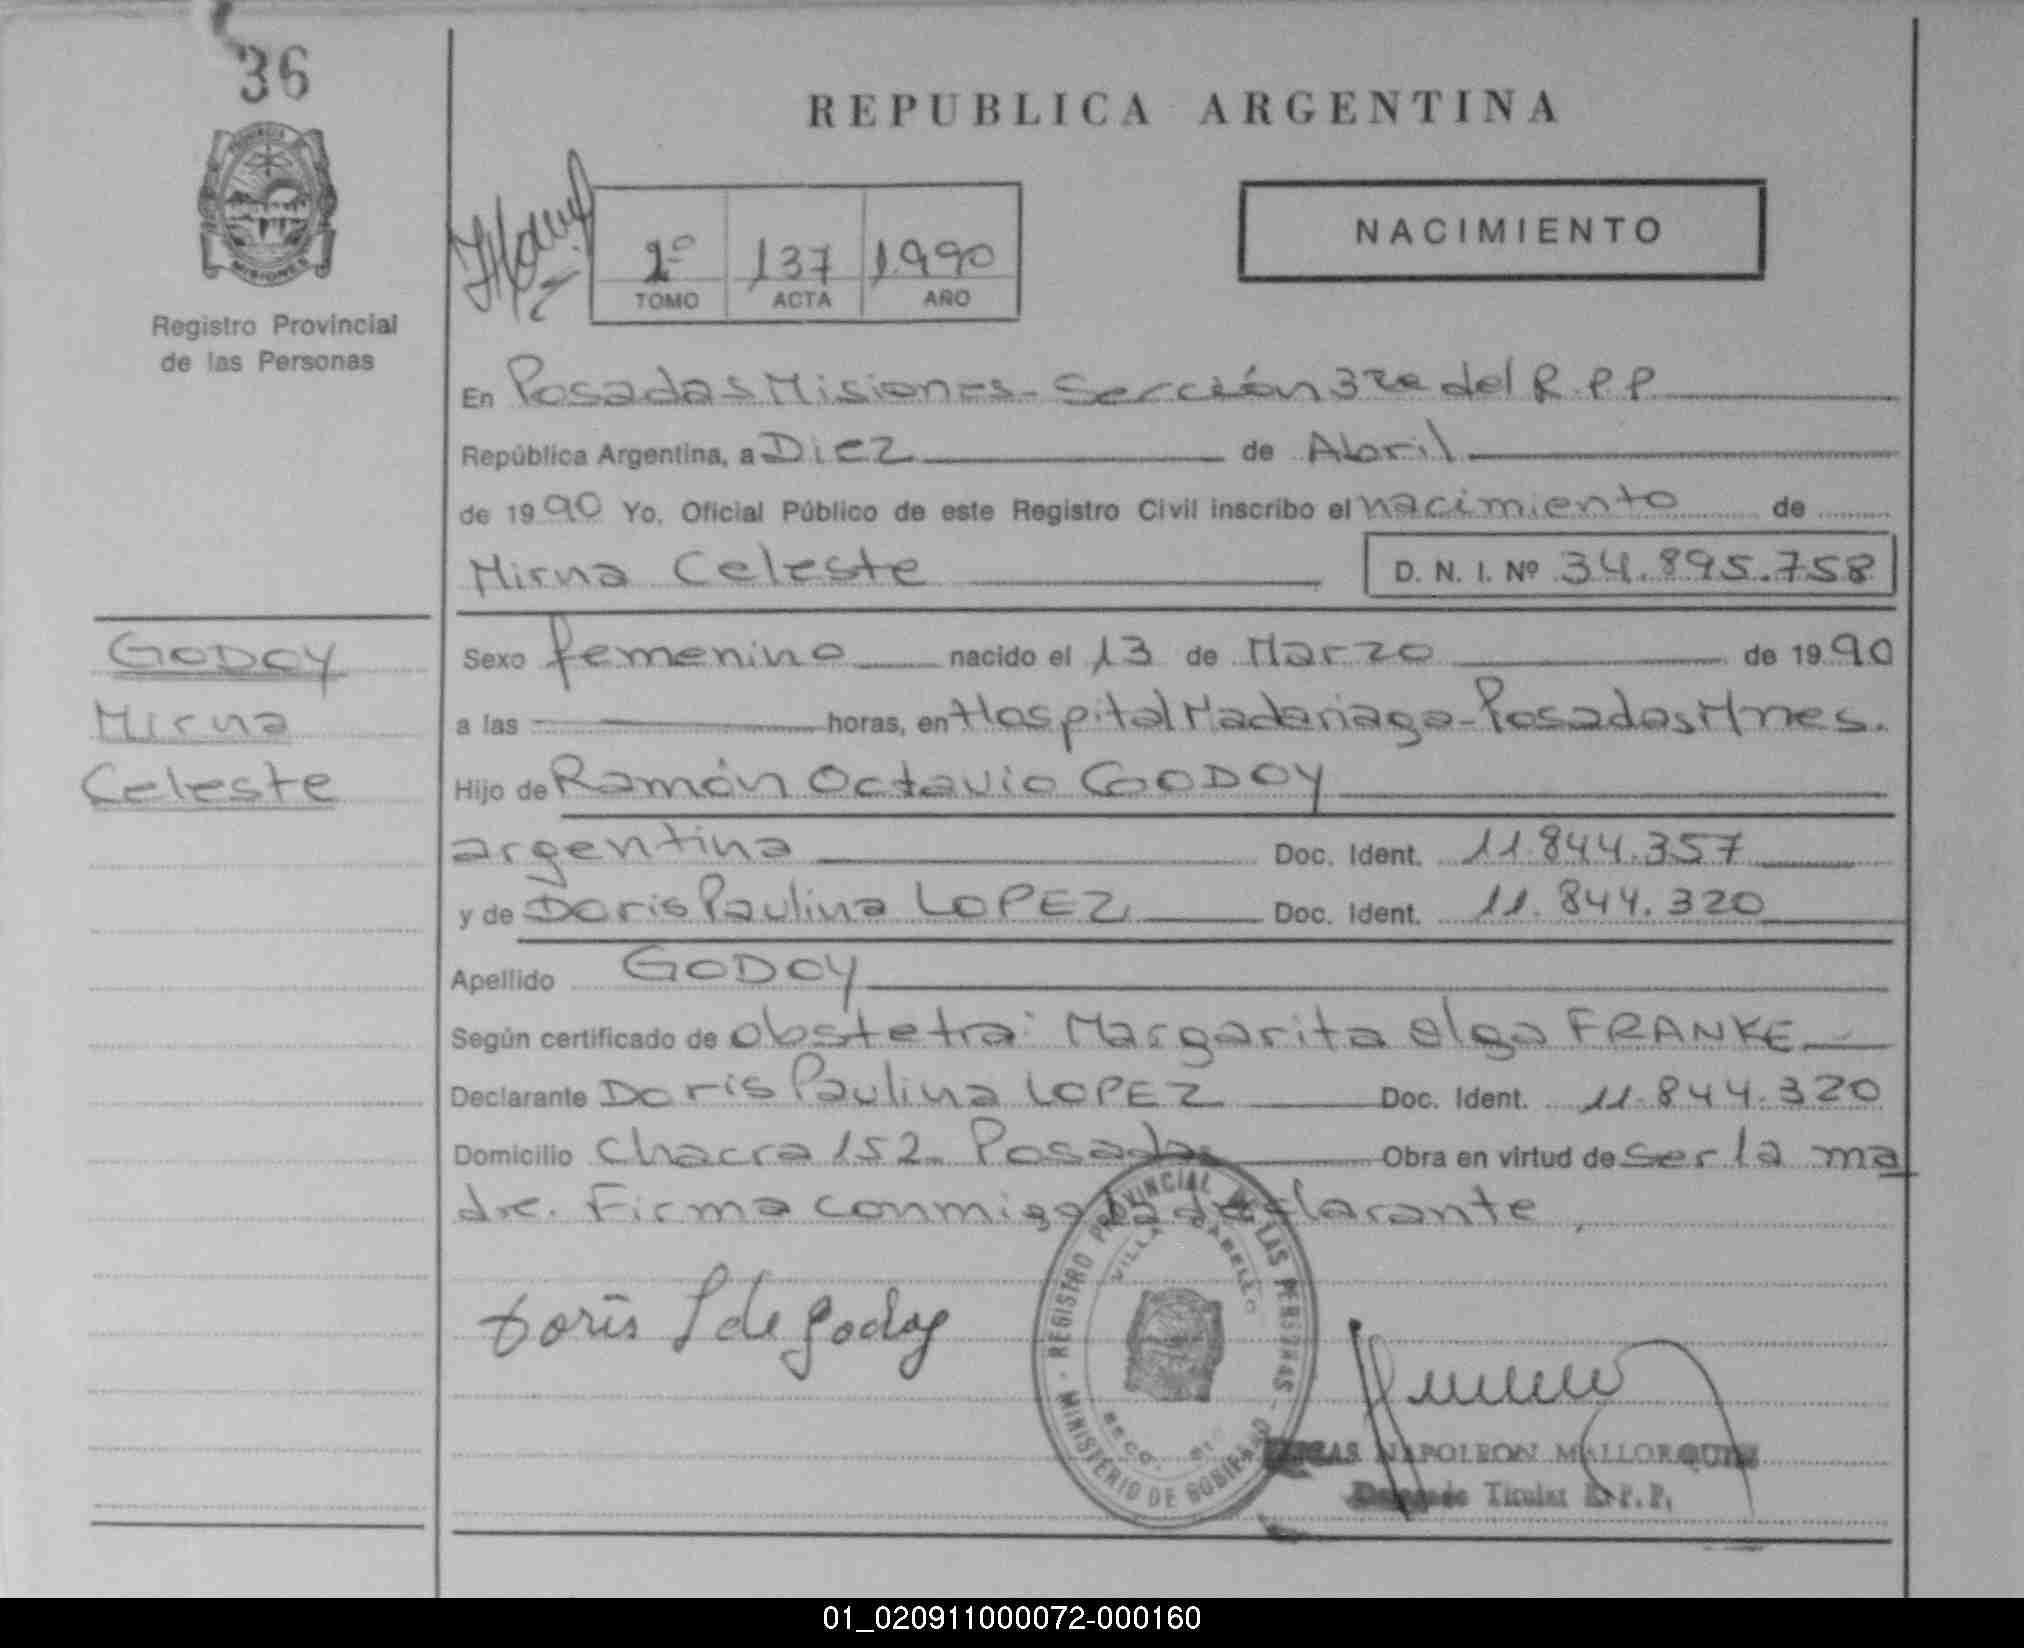 36
REPUBLICA ARGENTINA
MISIONES
Registro Provincial
de las Personas
1º 137 1990
TOMO ACTA AÑO
NACIMIENTO
En Posadas Misiones - Sección 3ra del R.P.P.
República Argentina, a Diez de Abril
de 1990 Yo, Oficial Público de este Registro Civil inscribo el nacimiento de
Mirna Celeste D. N. I. Nº 34.895.758
GODOY
Mirna
Celeste
Sexo femenino nacido el 13 de Marzo de 1990
a las horas, en Hospital Madariaga - Posadas Mnes.
Hijo de Ramón Octavio GODOY
argentina Doc. Ident. 11.844.357
y de Doris Paulina LOPEZ Doc. Ident. 11.844.320
Apellido GODOY
Según certificado de obstetra: Margarita Olga FRANKE
Declarante Doris Paulina LOPEZ Doc. Ident. 11.844.320
Domicilio Chacra 152. Posadas Obra en virtud de ser la ma
dre. Firma conmigo la declarante.
Doris L de Godoy
REGISTRO PROVINCIAL DE LAS PERSONAS
MINISTERIO DE GOBIERNO
VILLA CABELLO
NAPOLEON MALLORQUIN
Titular R. P. P.
01_020911000072-000160